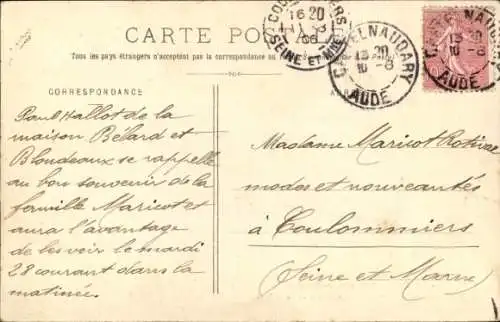 CARTE POSTALE
Tous les pays étrangers n'acceptent pas la correspondance au
CORRESPONDANCE
Paul Hallot de la
maison Bélard et
Blondeaux se rappelle
au bon souvenir de la
famille Maricot et
aura l'avantage
de les voir le mardi
28 courant dans la
matinée.
COULOMMIERS
16 20
SEINE ET MNE
CASTELNAUDARY
13 20
10 -8
AUDE
CASTELNAUDARY
13 20
10 -8
AUDE
Madame Maricot Rotival
modes et nouveautés
à Coulommiers
(Seine et Marne)